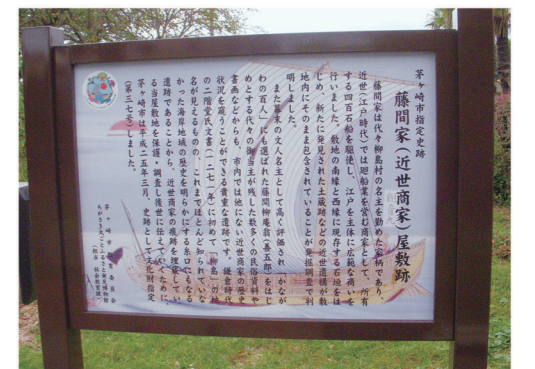 茅ヶ崎市指定史跡
藤間家(近世商家)屋敷跡
藤間家は代々柳島村の名主を勤めた家柄であり、
近世(江戸時代)では廻船業を営む商家として、所有
する四百石船を駆使し、江戸を主体に広範な商いを
行いました。敷地の南縁と西縁に現存する石垣をは
じめ、新たに発見された土蔵跡などの近世遺構が敷
地内にそのまま包含されていることが発掘調査で判
明しました。
また幕末の文人名主として高く評価され、「かなが
わの百人」にも選ばれた藤間柳庵翁(善五郎)をはじ
めとする代々の御当主が残した数多くの民俗資料や
書画などからも、市内では他にない近世商家の歴史
状況を窺うことができる貴重な遺跡です。鎌倉時代
の二階堂氏文書(一二七一年)に初めて「柳島」の地
名が見えるものの、これまでほとんど知られていな
かった海岸地域の歴史を明らかにする糸口にもなる
遺跡であることから、近世商家の痕跡を埋蔵してい
る当屋敷地を保護・調査し後世に伝えていくために、
茅ヶ崎市は平成二五年三月、史跡として文化財指定
(第三七号)しました。
茅ヶ崎市教育委員会
ちがさき丸ごとふるさと発見博物館
(担当 社会教育課)